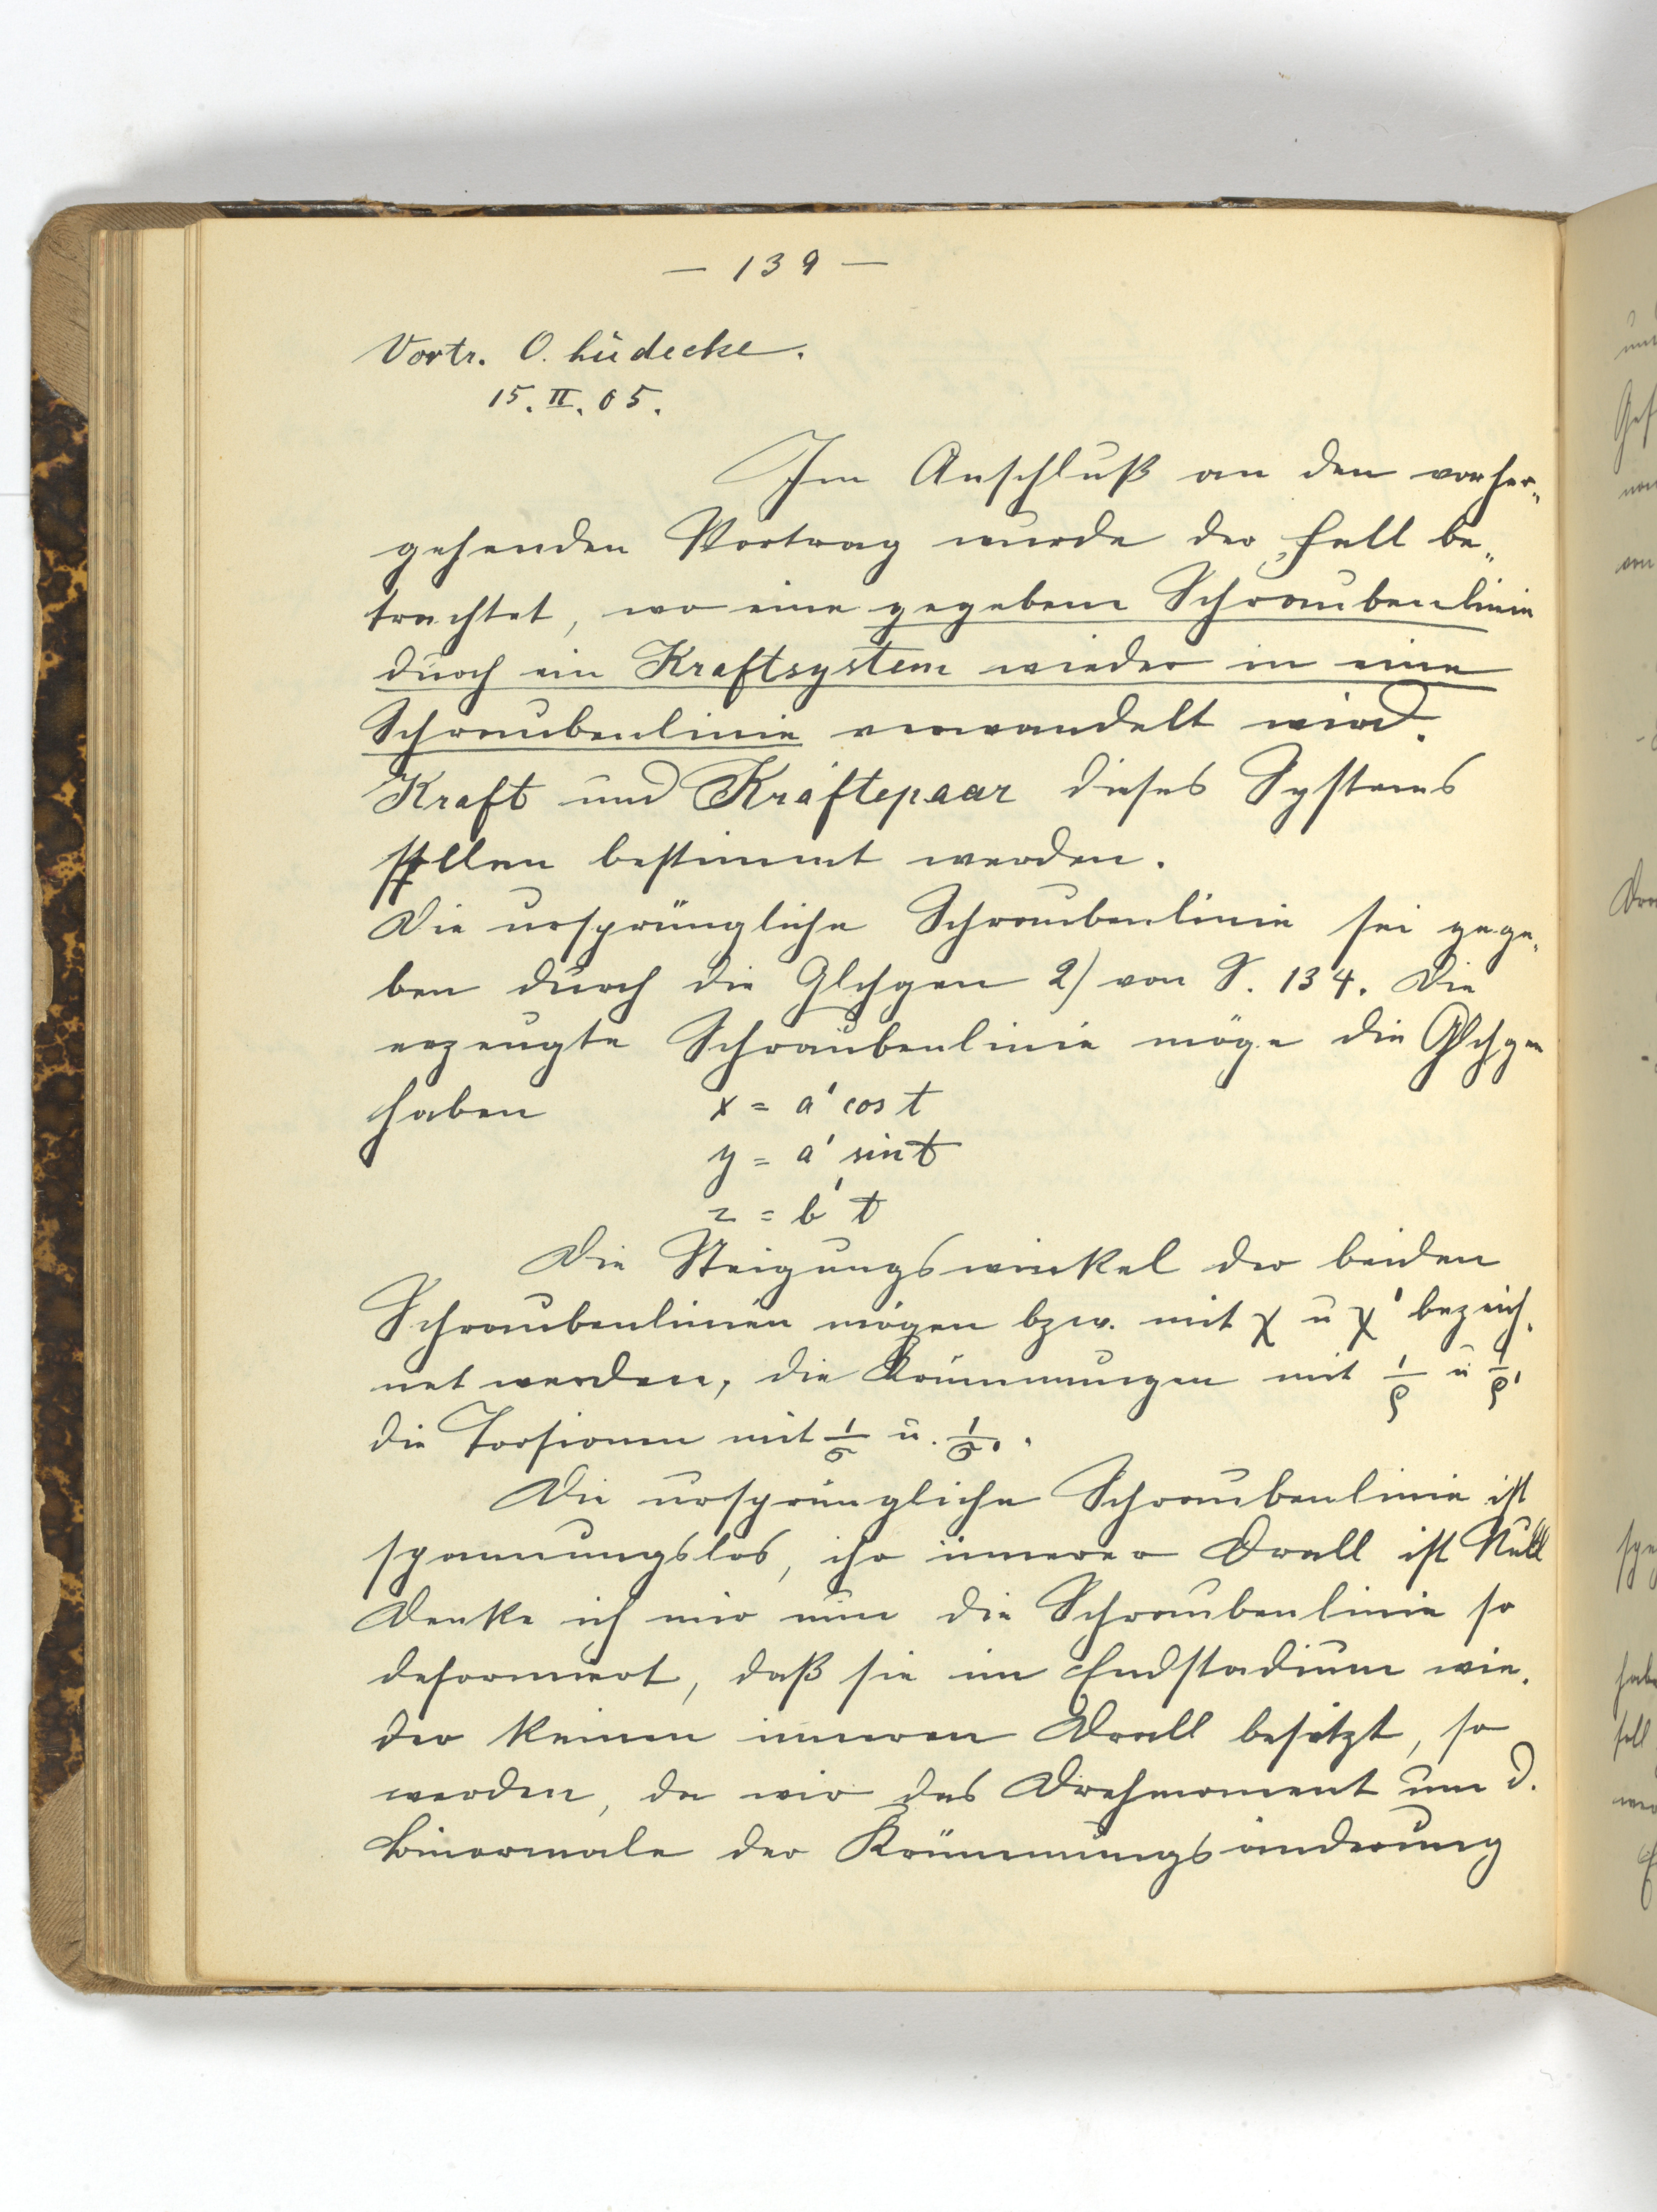 — 139 —
Vortr. O. Lüdecke.
15. II. 05.
Im Anschluß an den vorher-
gehenden Vortrag wurde der Fall be-
trachtet, wo eine gegebene Schraubenlinie
durch ein Kraftsystem wieder in eine
Schraubenlinie verwandelt wird.
Kraft und Kräftepaar dieses Systems
sollen bestimmt werden.
Die ursprüngliche Schraubenlinie sei gege-
ben durch die Glchgen 2) von S. 134. Die
erzeugte Schraubenlinie möge die Glchgen
haben x = a' cos t
y = a' sin t
z = b' t
Die Steigungswinkel der beiden
Schraubenlinien mögen bzw. mit χ u χ' bezeich-
net werden, die Krümmungen mit 1/ρ u 1/ρ',
die Torsionen mit 1/σ u. 1/σ'.
Die ursprüngliche Schraubenlinie ist
spannungslos, ihr innerer Drall ist Null
Denke ich mir nun die Schraubenlinie so
deformiert, daß sie im Endstadium wie-
der keinen inneren Drall besitzt, so
werden, da wir das Drehmoment um d.
Binormale der Krümmungsänderung